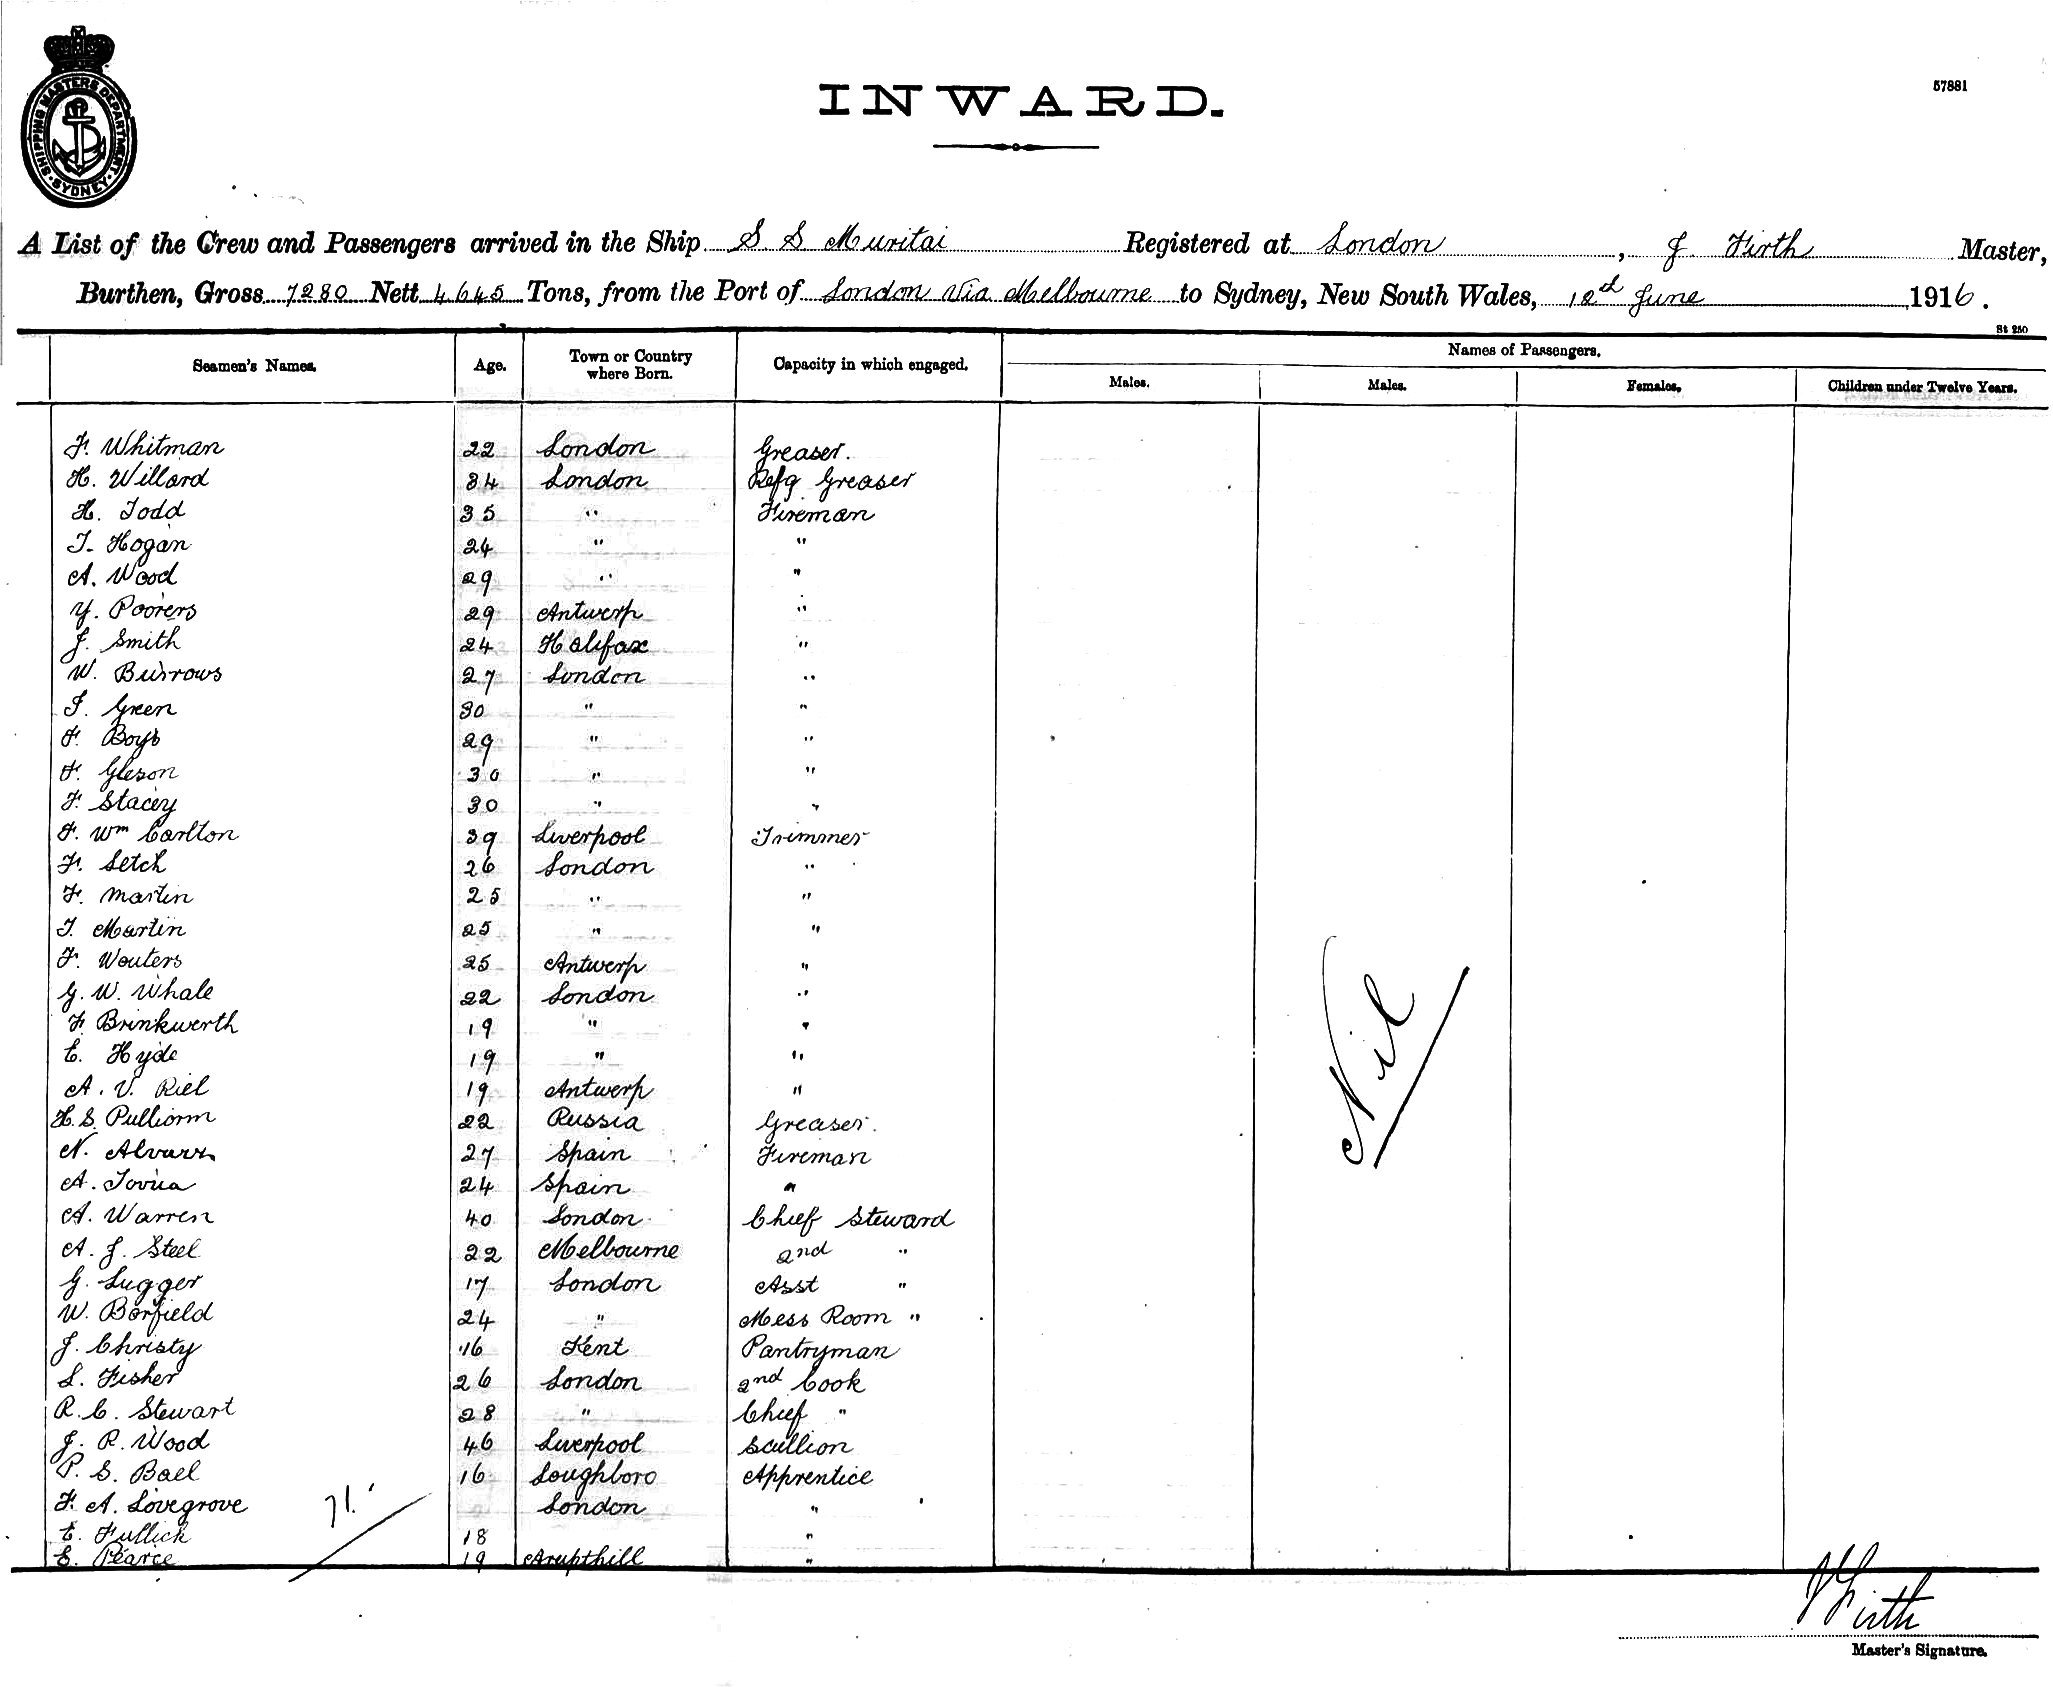 SHIPPING MASTERS DEPARTMENT
SYDNEY
INWARD.
57881
A List of the Crew and Passengers arrived in the Ship S S Muritai Registered at London, J Firth Master,
Burthen, Gross 7280 Nett 4645 Tons, from the Port of London Via Melbourne to Sydney, New South Wales, 12th June 1916.
St 250
Seamen's Names. Age. Town or Country where Born. Capacity in which engaged. Names of Passengers.
Males. Males. Females. Children under Twelve Years.
F. Whitman 22 London Greaser.
H. Willard 34 London Refg Greaser
H. Todd 35 " Fireman
T. Hogan 24 " "
A. Wood 29 " "
Y. Poorers 29 Antwerp "
J. Smith 24 Halifax "
W. Burrows 27 London "
T. Green 30 " "
F. Boys 29 " "
F. Gleson 30 " "
F. Stacey 30 " "
F. Wm Carlton 39 Liverpool Trimmer
F. Setch 26 London "
F. Martin 25 " "
T. Martin 25 " "
F. Wouters 25 Antwerp "
G. W. Whale 22 London "
F. Brinkwerth 19 " "
E. Hyde 19 " "
A. V. Riel 19 Antwerp "
H. S. 22 Russia Greaser.
N. 27 Spain Fireman
A. 24 Spain "
A. Warren 40 London Chief Steward
A. J. Steel 22 Melbourne 2nd "
G. Lugger 17 London Asst "
W. Barfield 24 " Mess Room "
J. Christy 16 Kent Pantryman
L. Fisher 26 London 2nd Cook
R. C. Stewart 28 " Chief "
J. R. Wood 46 Liverpool Scullion
P. S. Bael 16 Loughboro Apprentice
F. A. Lovegrove London "
E. Fullick 18 "
E. Pearce 19 "
71.
Nil
J Firth
Master's Signature.